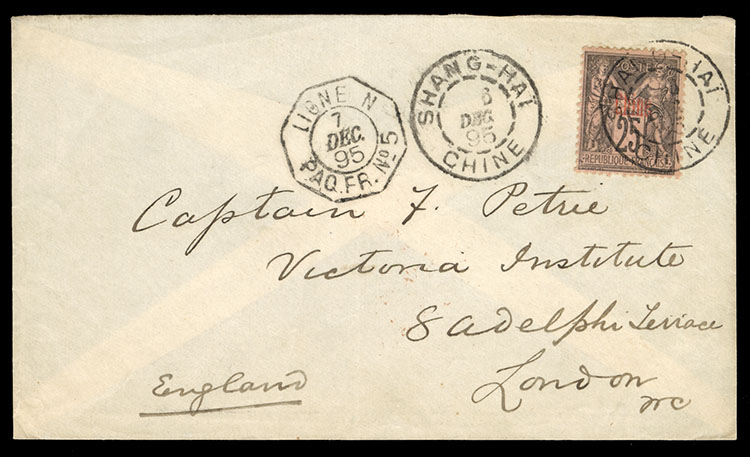 LIGNE N
7
DEC.
95
PAQ.FR. Nº5
SHANG-HAÏ
6
DEC.
95
CHINE
25
REPUBLIQUE
HAÏ
CHINE
Captain F. Petrie
Victoria Institute
8 Adelphi Terrace
London
WC
England